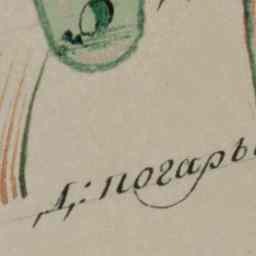 Д: погарь